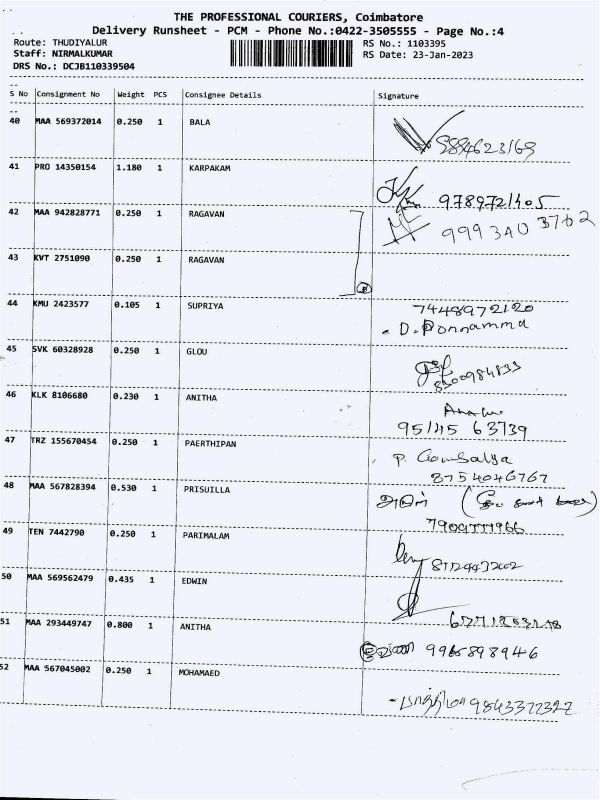 THE PROFESSIONAL COURIERS, Coimbatore
Delivery Runsheet - PCM - Phone No.:0422-3505555 - Page No.:4
Route: THUDIYALUR RS No.: 1103395
Staff: NIRMALKUMAR RS Date: 23-Jan-2023
DRS No.: DCJB110339504
S No Consignment No Weight PCS Consignee Details Signature
40 MAA 569372014 0.250 1 BALA
9884623169
41 PRO 14350154 1.180 1 KARPAKAM
9789721405
42 MAA 942828771 0.250 1 RAGAVAN
9993403762
43 KVT 2751090 0.250 1 RAGAVAN
44 KMU 2423577 0.105 1 SUPRIYA 7448972120
D. Ponnamma
45 SVK 60328928 0.250 1 GLOU
8300984833
46 KLK 8106680 0.230 1 ANITHA
95145 63739
47 TRZ 155670454 0.250 1 PAERTHIPAN
P. Gombalya
8754046767
48 MAA 567828394 0.530 1 PRISUILLA
49 TEN 7442790 0.250 1 PARIMALAM
8124432002
50 MAA 569562479 0.435 1 EDWIN
51 MAA 293449747 0.800 1 ANITHA
9965898946
52 MAA 567045002 0.250 1 MOHAMAED
9843322322